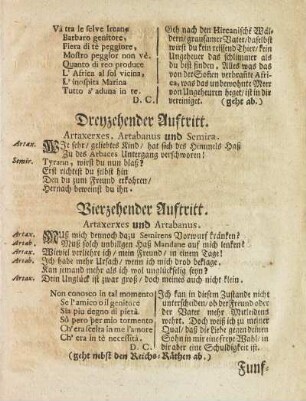 Và tra le selve Ircane
Barbaro genitore,
Fiera di te peggiore,
Mostro peggior non vè.
Quanto di reo produce
L' Africa al sol vicina,
L' inospita Marina
Tutto s' aduna in te.
D. C.
Geh nach den Hircanischen Wäl-
dern grausamer Vater, daselbst
wirst du kein reissend Thier, kein
Ungeheuer das schlimmer als
du bist finden, Alles was das
von der Sonnen verbrannte Afri-
ca, was das unbewohnte Meer
von Ungeheuren heget, ist in dir
vereiniget. (geht ab.)
Dreyzehender Auftritt.
Artaxerxes. Artabanus und Semira.
Artax. Mit sehr, geliebtes Kind, hat sich des Himmels Haß
Zu des Arbaces Untergang verschworen!
Semir. Tyrann, wirst du nun blaß?
Erst richtest du selbst hin
Den du zum Freund erkohren,
Hernach beweinst du ihn.
Vierzehender Auftritt.
Artaxerxes und Artabanus.
Artax. Muß mich dennoch dazu Semirens Vorwurf kränken?
Artab. Muß solch unbilligen Haß Mandane auf mich lenken?
Artax. Wieviel verliehre ich, mein Freund, in einem Tage!
Artab. Ich habe mehr Ursach, wenn ich mich drob beklage.
Kan jemand mehr als ich wol unglückselig seyn?
Artax. Dein Unglück ist zwar groß, doch meines auch nicht klein.
Non conosco in tal momento
Se l'amico o il genitore
Sia più degno di pietà.
Sò però per mio tormento,
Ch' era scelta in me l'amore
Ch' era in te necessità.
D. C.
Ich kan in diesem Zustande nicht
unterscheiden, ob der Freund oder
der Vater mehr Mitleidens
wehrt. Doch weiß ich zu meiner
Qual, daß die Liebe gegen deinem
Sohn in mir eine freye Wahl, in
dir aber eine Schuldigkeit ist.
(geht nebst den Reichs-Räthen ab.)
Funf-